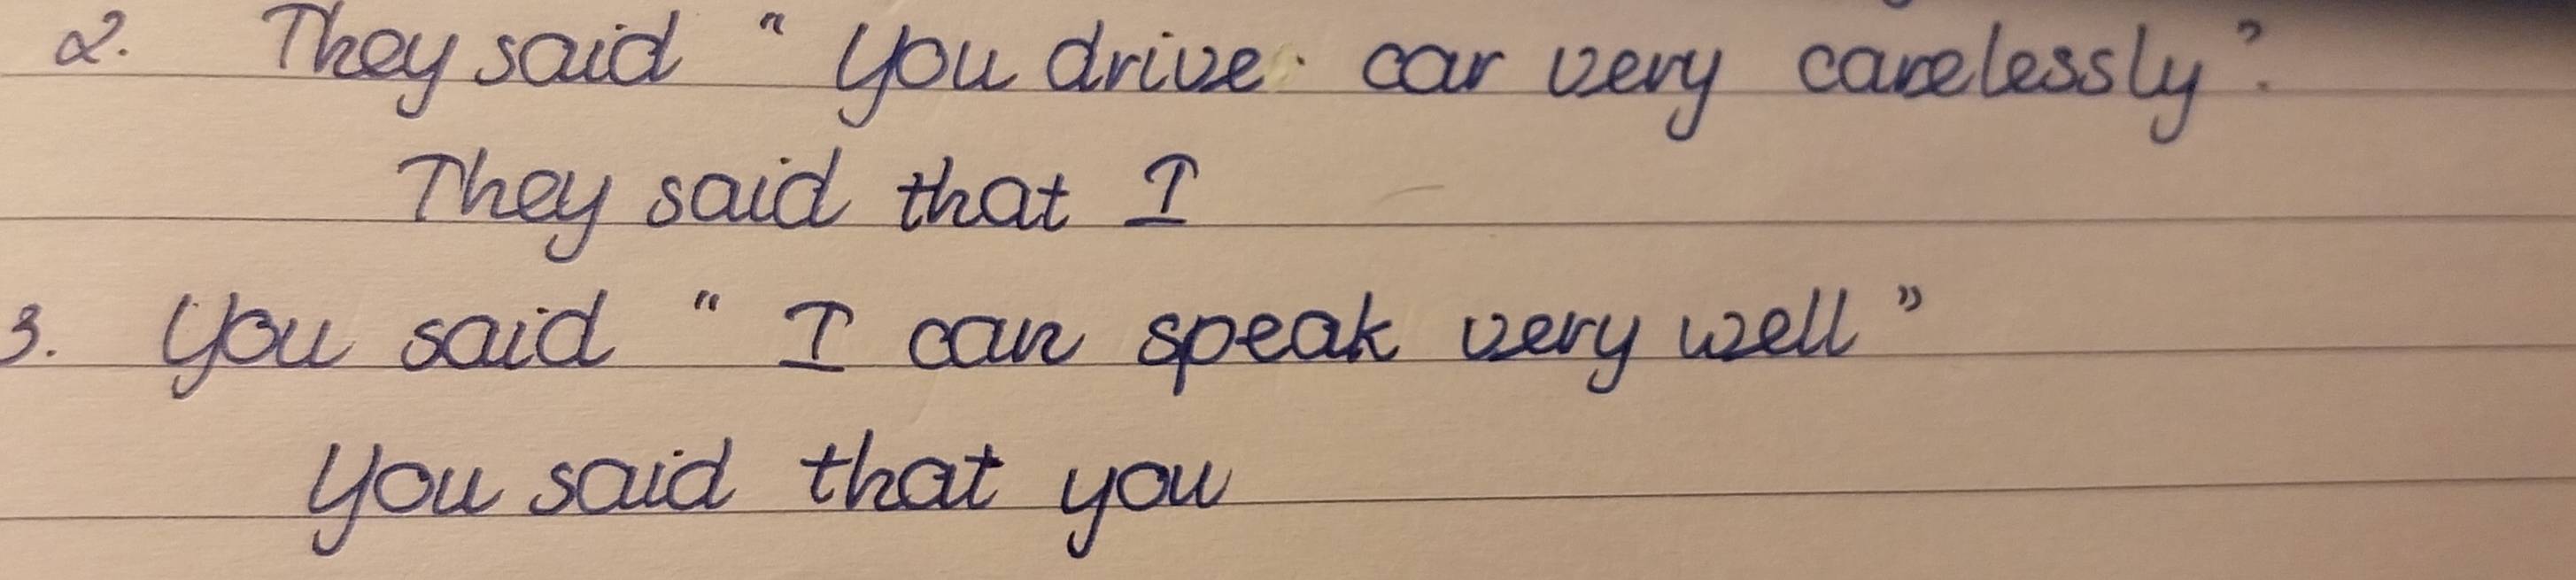 2. They said " You drive car very carelessly".
They said that I
3. You said " I can speak very well "
You said that you